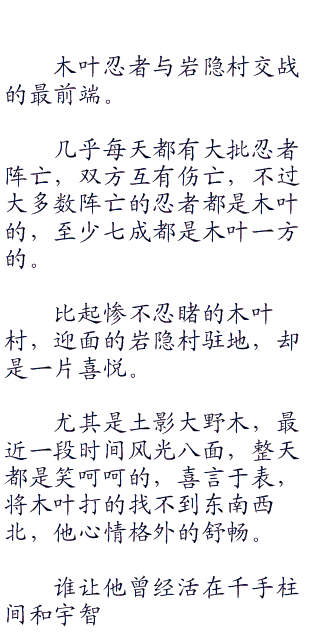 木叶忍者与岩隐村交战
的最前端。
几乎每天都有大批忍者
阵亡，双方互有伤亡，不过
大多数阵亡的忍者都是木叶
的，至少七成都是木叶一方
的。
比起惨不忍睹的木叶
村，迎面的岩隐村驻地，却
是一片喜悦。
尤其是土影大野木，最
近一段时间风光八面，整天
都是笑呵呵的，喜言于表，
将木叶打的找不到东南西
北，他心情格外的舒畅。
谁让他曾经活在千手柱
间和宇智